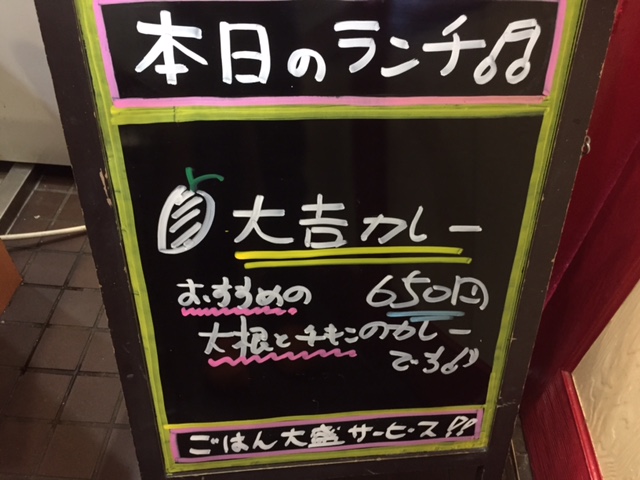 本日のランチ♫
大吉カレー
おすすめの 650円
大根とチキンのカレー
です♪
ごはん大盛サービス!!